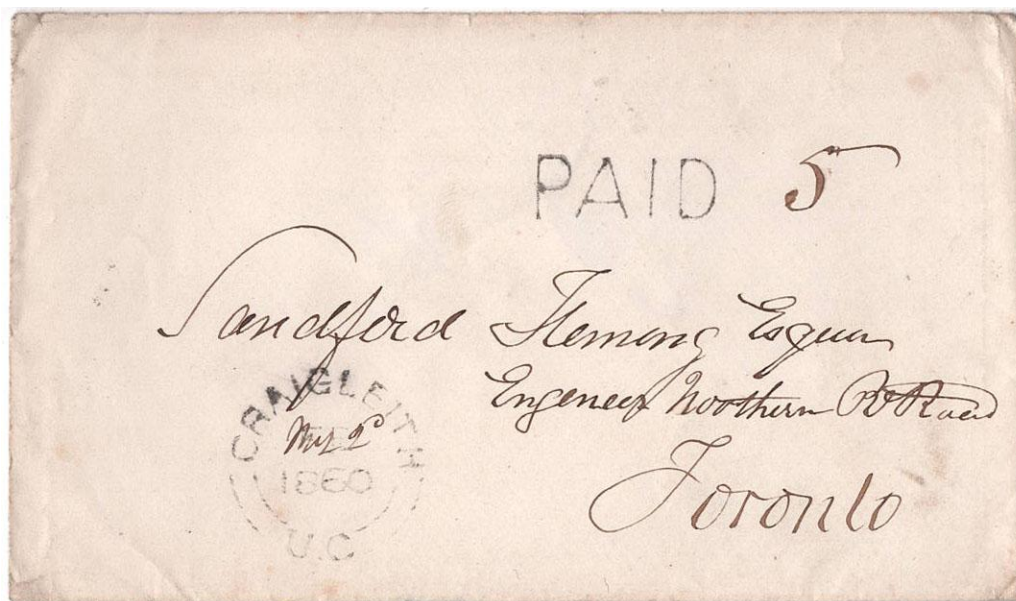 PAID 5
Sandford Fleming Esquire
Engeneer Northern RRoad
Toronto
CRAIGLEITH
1860
U.C